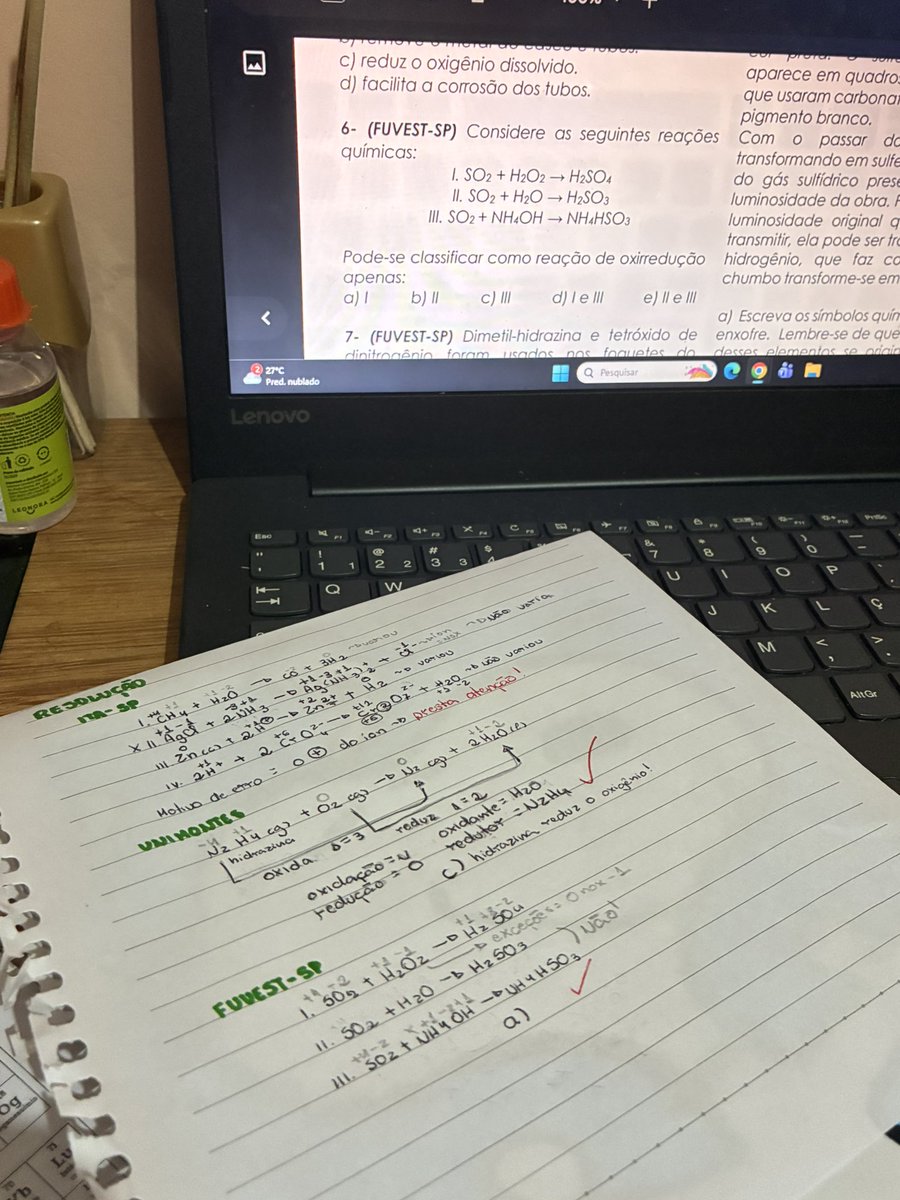 c) reduz o oxigênio dissolvido.
d) facilita a corrosão dos tubos.
6- (FUVEST-SP) Considere as seguintes reações
químicas:
I. SO2 + H2O2 → H2SO4
II. SO2 + H2O → H2SO3
III. SO2 + NH4OH → NH4HSO3
Pode-se classificar como reação de oxirredução
apenas:
a) I b) II c) III d) I e III e) II e III
7- (FUVEST-SP) Dimetil-hidrazina e tetróxido de
dinitrogênio foram usados nos foguetes do
aparece em quadros
que usaram
pigmento branco.
Com o passar
transformando em
do gás sulfídrico
luminosidade da obra.
luminosidade original
transmitir, ela pode ser
hidrogênio, que faz
chumbo transforme-se em
a) Escreva os símbolos
enxofre. Lembre-se de que
desses elementos se
2
27°C
Pred. nublado
Pesquisar
Lenovo
Esc F1 F2 F3 F4 F5 F6 F7 F8 F9 F10 F11 F12 PrtSc
1 2 3 4 7 8 9 0
Q W U I O P
J K L Ç
M
AltGr
LEONORA
RESOLUÇÃO
ITA-SP
I. CH4 + H2O → CO + 3H2 → variou
X II AgCl + 2NH3 → Ag(NH3)2 + Cl → não varia
III Zn(s) + 2H+ → Zn2+ + H2 → variou
IV. 2H+ + 2 CrO4 2- → Cr2O7 2- + H2O → não variou
Motivo de erro = o + do íon → presta atenção!
UNIMONTES
N2H4(g) + O2(g) → N2(g) + 2H2O(l)
hidrazina
oxida
reduz
oxidação = N
redução = O
oxidante =
redutor = N2H4
c) hidrazina reduz o oxigênio!
FUVEST-SP
I. SO2 + H2O2 → H2SO4
exceções = 0nox -1
II. SO2 + H2O → H2SO3
Não!
III. SO2 + NH4OH → NH4HSO3
a)
Og
Lu